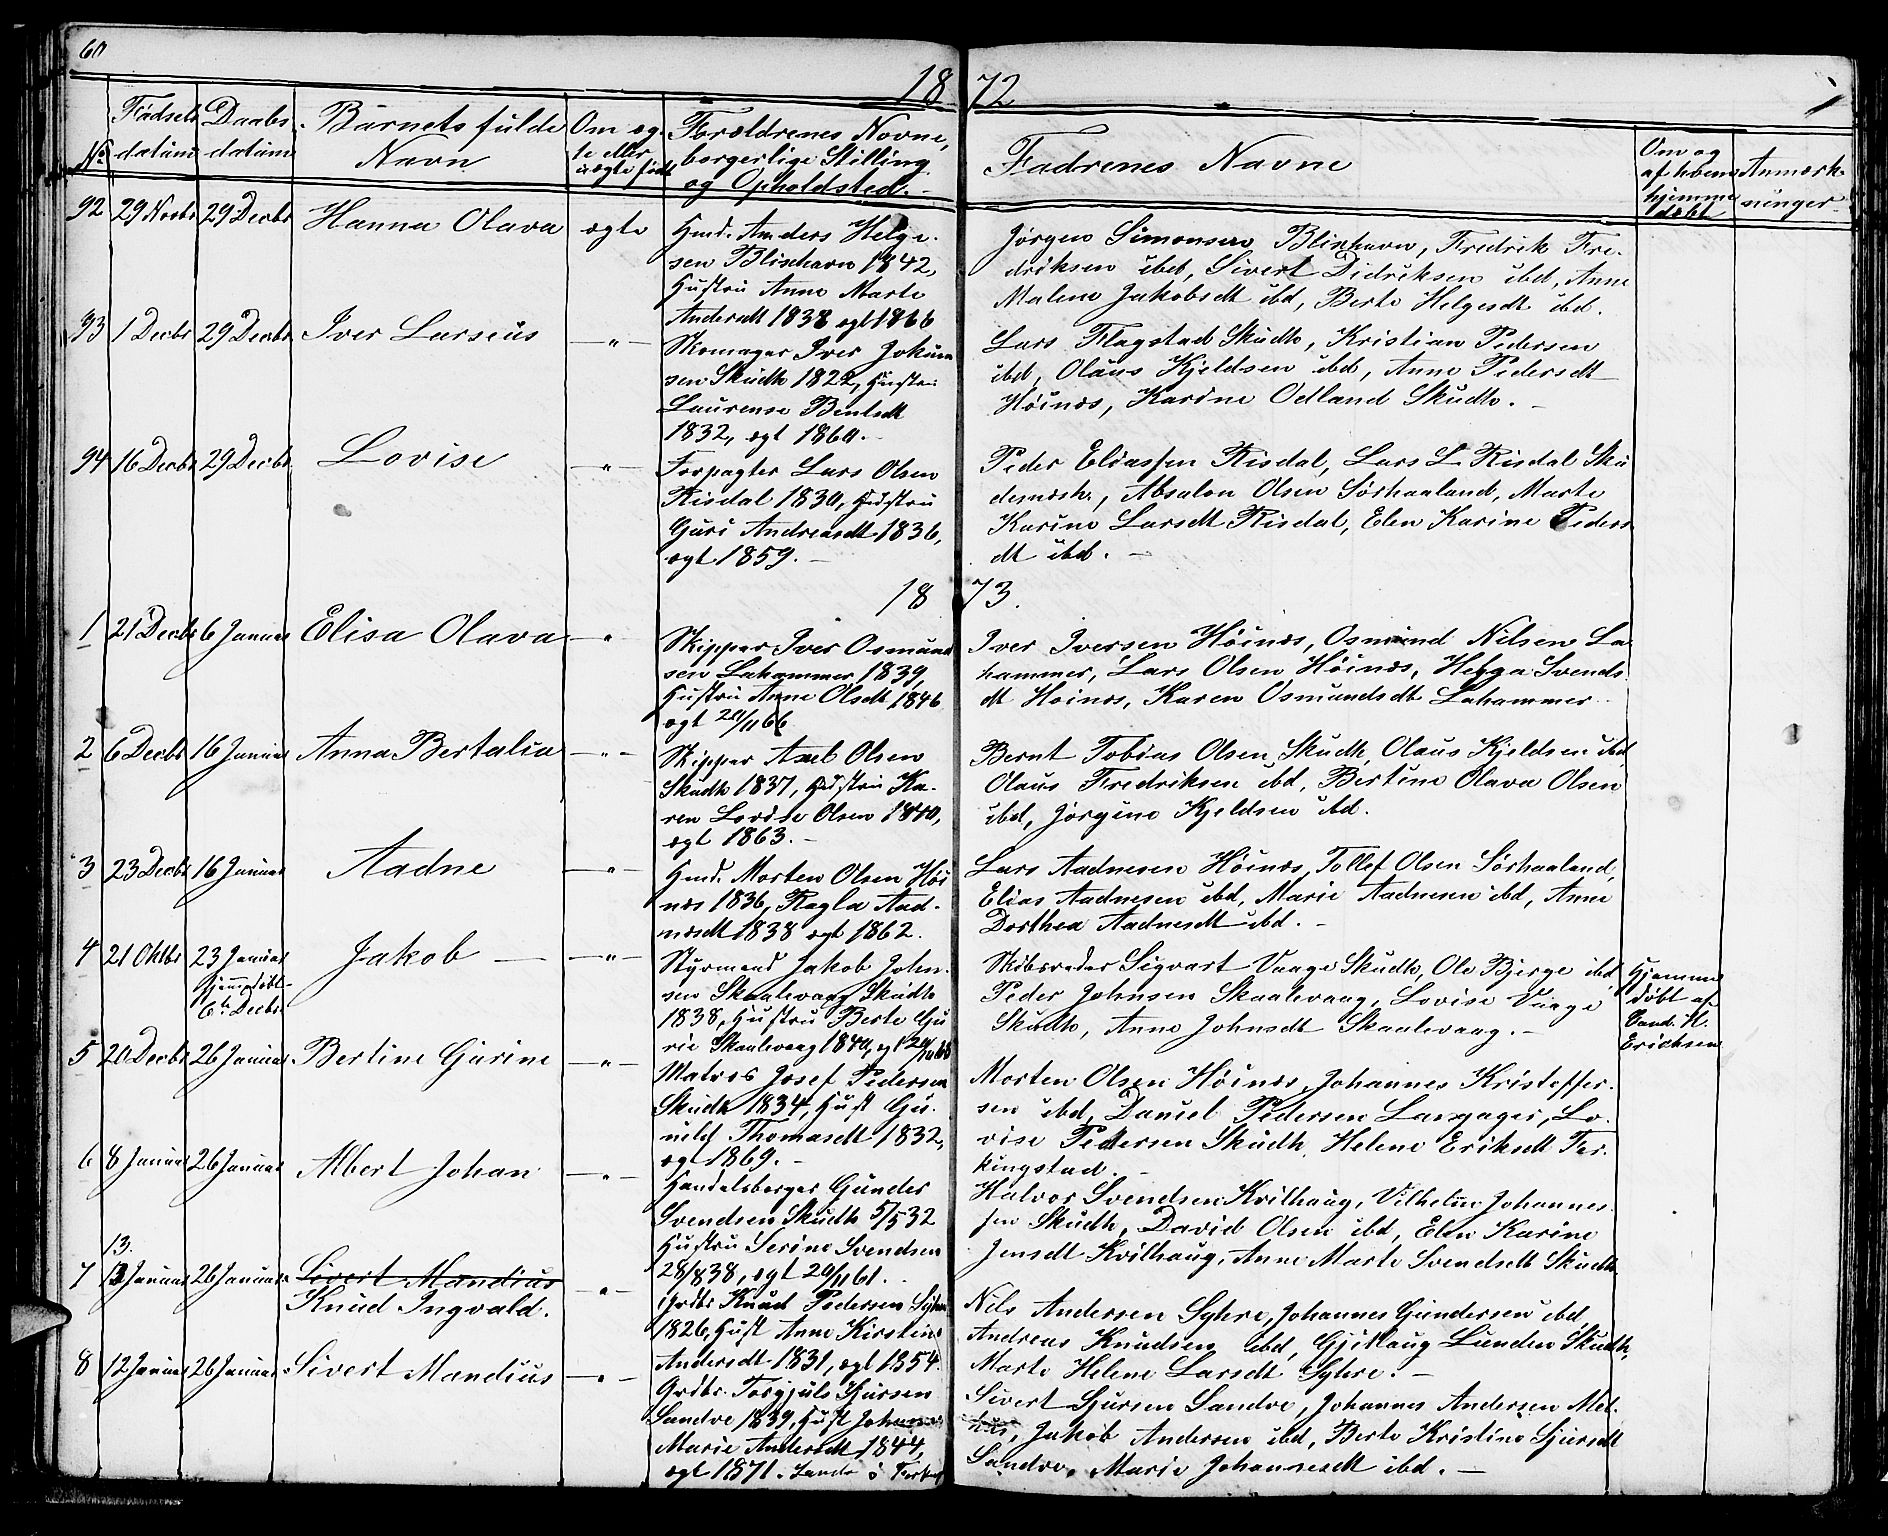 60
18 72
No
Fødsels datum
Daabs datum
Barnets fulde Navn
Om ægte eller uægte født
Forældrenes Navne, borgerlige Stilling og Opholdsted.
Fadrenes Navne
Om og af hvem hjemmedøbt
Anmærkninger
92 29 Novbr 29 Decbr Hanna Olava ægte
Gmd. Anders Helge-
sen Blixhavn 1842,
Hustru Anne Marte
Andersdt 1838 ægt 1866
Jørgen Simonsen Blixhavn, Fredrik Fre-
driksen ibd, Sivert Didriksen ibd, Anne
Malene Jakobsdt ibd, Berte Helgesdt ibd.
93 1 Decbr 29 Decbr Iver Larseus - " -
Skomager Iver Jokum-
sen Skudh 1822, Hustru
Laurense Bentsdt
1832, ægt 1860.
Lars Flagstad Skudh, Kristian Pedersen
ibd, Olaus Kjeldsen ibd, Anne Pedersdt
Høinæs, Karine Odland Skudh. -
94 16 Decbr 29 Decbr Lovise - " -
Forpagter Lars Olsen
Risdal 1830, Hustru
Guri Andreasdt 1836,
ægt 1859. -
Peder Eliassen Risdal, Lars L Risdal Sku
desnæsh., Absalon Olsen Sørhaaland, Marte
Karine Larsdt Risdal, Elen Karine Peders
dt ibd. -
18 73.
1 21 Decbr 6 Januar Elisa Olava - " -
Skipper Iver Osmund
sen Lahammer 1839,
Hustru Anne Olsdt 1846
ægt 20/11 66
Iver Iversen Høinæs, Osmund Nilsen La-
hammer, Lars Olsen Høinæs, Helga Svends
dt Høinæs, Karen Osmundsdt Lahammer
2 6 Decbr 16 Januar Anna Bertalia - " -
Skipper Axel Olsen
Skudh 1837, Hustru Ka-
ren Lovise Olsen 1840,
ægt 1863. -
Bernt Tobias Olsen Skudh, Olaus Kjeldsen ibd
Olaus Fredriksen ibd, Bertine Olava Olsen
ibd, Jørgine Kjeldsen ibd.
3 23 Decbr 16 Januar Aadne - " -
Gmd. Morten Olsen Høi
næs 1836, Ragla Aad-
næsdt 1838 ægt 1862.
Lars Aadnesen Høinæs, Tollef Olsen Sørhaaland,
Elias Aadnesen ibd, Marie Aadnesen ibd, Anne
Dorthea Aadnesdt ibd. -
4 21 Oktbr 23 Januar Hjemmedøbt 6te Decbr Jakob - " -
Styrmand Jakob John-
sen Skaalevaag Skudh
1838, Hustru Berte Gu
rie Skaalevaag 1840, ægt
Skibsreder Sigvart Vaage Skudh, Ole Bjerge ibd
Peder Johnsen Skaalevaag, Lovise Vaage
Skudh, Anne Johnsdt Skaalevaag. -
Hjemme
døbt af
H.
Erichsen
5 20 Decbr 26 Januar Bertine Gurine - " -
Matros Josef Pedersen
Skudh 1834, Hust Gu-
nild Thomasdt 1832,
ægt 1869. -
Morten Olsen Høinæs, Johannes Kristoffer-
sen ibd, Daniel Pedersen Langager, Lo-
vise Pedersen Skudh, Helene Eriksdt Fer-
kingstad. -
6 8 Januar 26 Januar Albert Johan - " -
Handelsborger Gunder
Svendsen Skudh 5/5 32
Hustru Serine Svendsen
28/8 38, ægt 20/11 61.
Halvor Svendsen Kvilhaug, Vilhelm Johannes-
sen Skudh, David Olsen ibd, Elen Karine
Jensdt Kvilhaug, Anne Marte Svendsdt Skudh
13.
7 Januar 26 Januar Sivert Mandius
Knud Ingvald. - " -
Grdbr Knud Pedersen Syhre
1826, Hust Anne Kirstine
Andersdt 1831, ægt 1854.
Nils Andersen Syhre, Johannes Gundersen ibd,
Andreas Knudsen ibd, Gjitlaug Lunden Skudh,
Marte Helene Larsdt Syhre. -
8 12 Januar 26 Januar Sivert Mandius - " -
Grdbr. Torgjuls Sjursen
Sandve 1839, Hust Johanne
Marie Andersdt 1844,
ægt 1871.
Sivert Sjursen Sandve, Johannes Andersen Mel-
hus, Jakob Andersen ibd, Berte Kristine Sjursdt
Sandve, Marie Johannesdt ibd. -